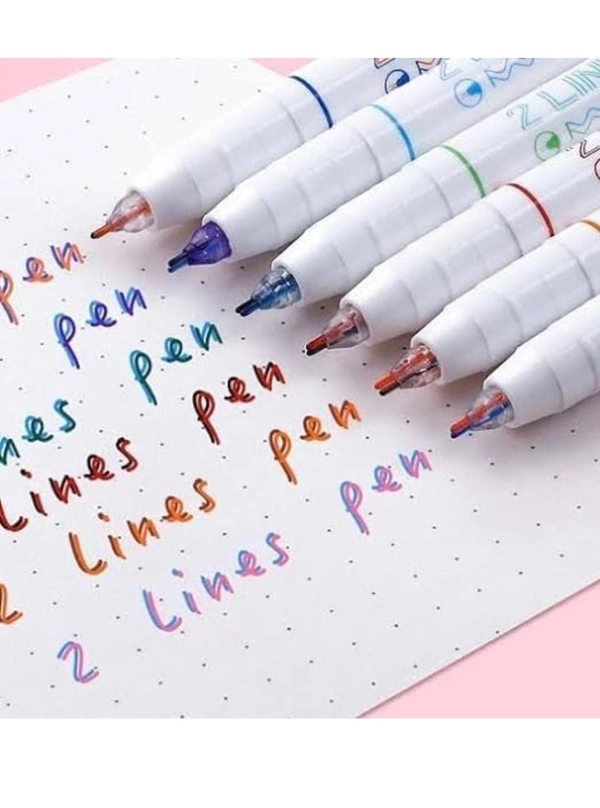 pen
pen
nes pen
Lines pen
2 Lines pen
2 Lines pen
"2 LIN